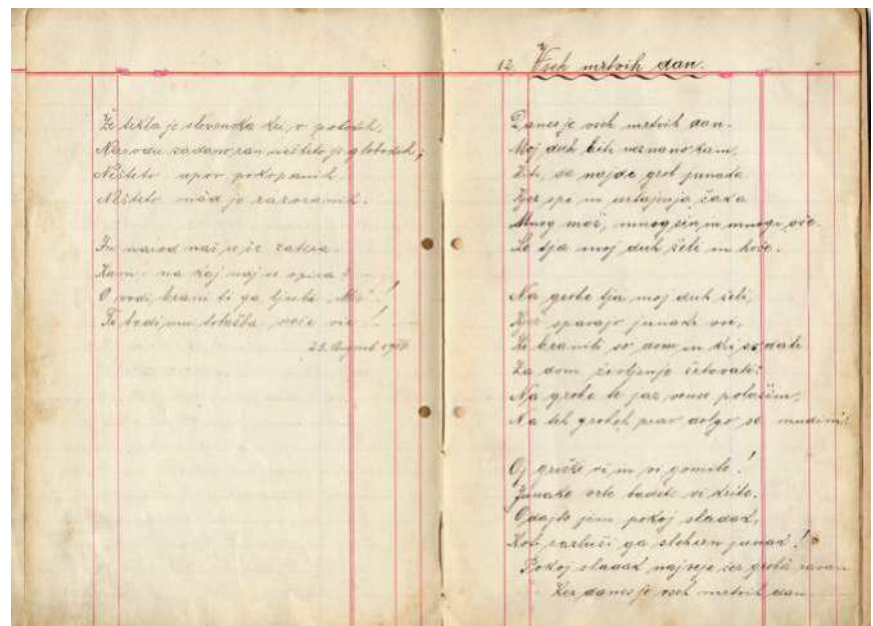 Že tekla je slovenska kri v potokih,
Narodu zadano ran nešteto je globokih;
Nešteto upov pokopanih
Nešteto nad je
In narod naš se še zatira
Kam - na kaj naj se opira?
O vodi, brani ti ga ljuba "Mč"!
Ti bodi mu tolažba
23. avgust 19
12. Vseh mrtvih dan.
Danes je vseh mrtvih dan.
Moj duh hiti neznano kam,
Hiti, da najde grob junaka
Kjer spi in vstajenja čaka
Mnog mož, mnog sin in mnogi oče.
Le tja moj duh želi in hoče.
Na grobe tja moj duh želi,
Kjer spavajo junaki vsi,
Ki branili so dom in kri so dali
Za dom življenje žrtvovali:
Na grobe te jaz vence položim,
Na teh grobeh prav dolgo se mudim!
Oj grički vi in vi gomile!
Junake vrle bodite vi krile.
Odajte jim pokoj sladak,
Kot zasluži ga sleherni junak!
Pokoj sladak naj veje čez grobov ravan
Ker danes je vseh mrtvih dan